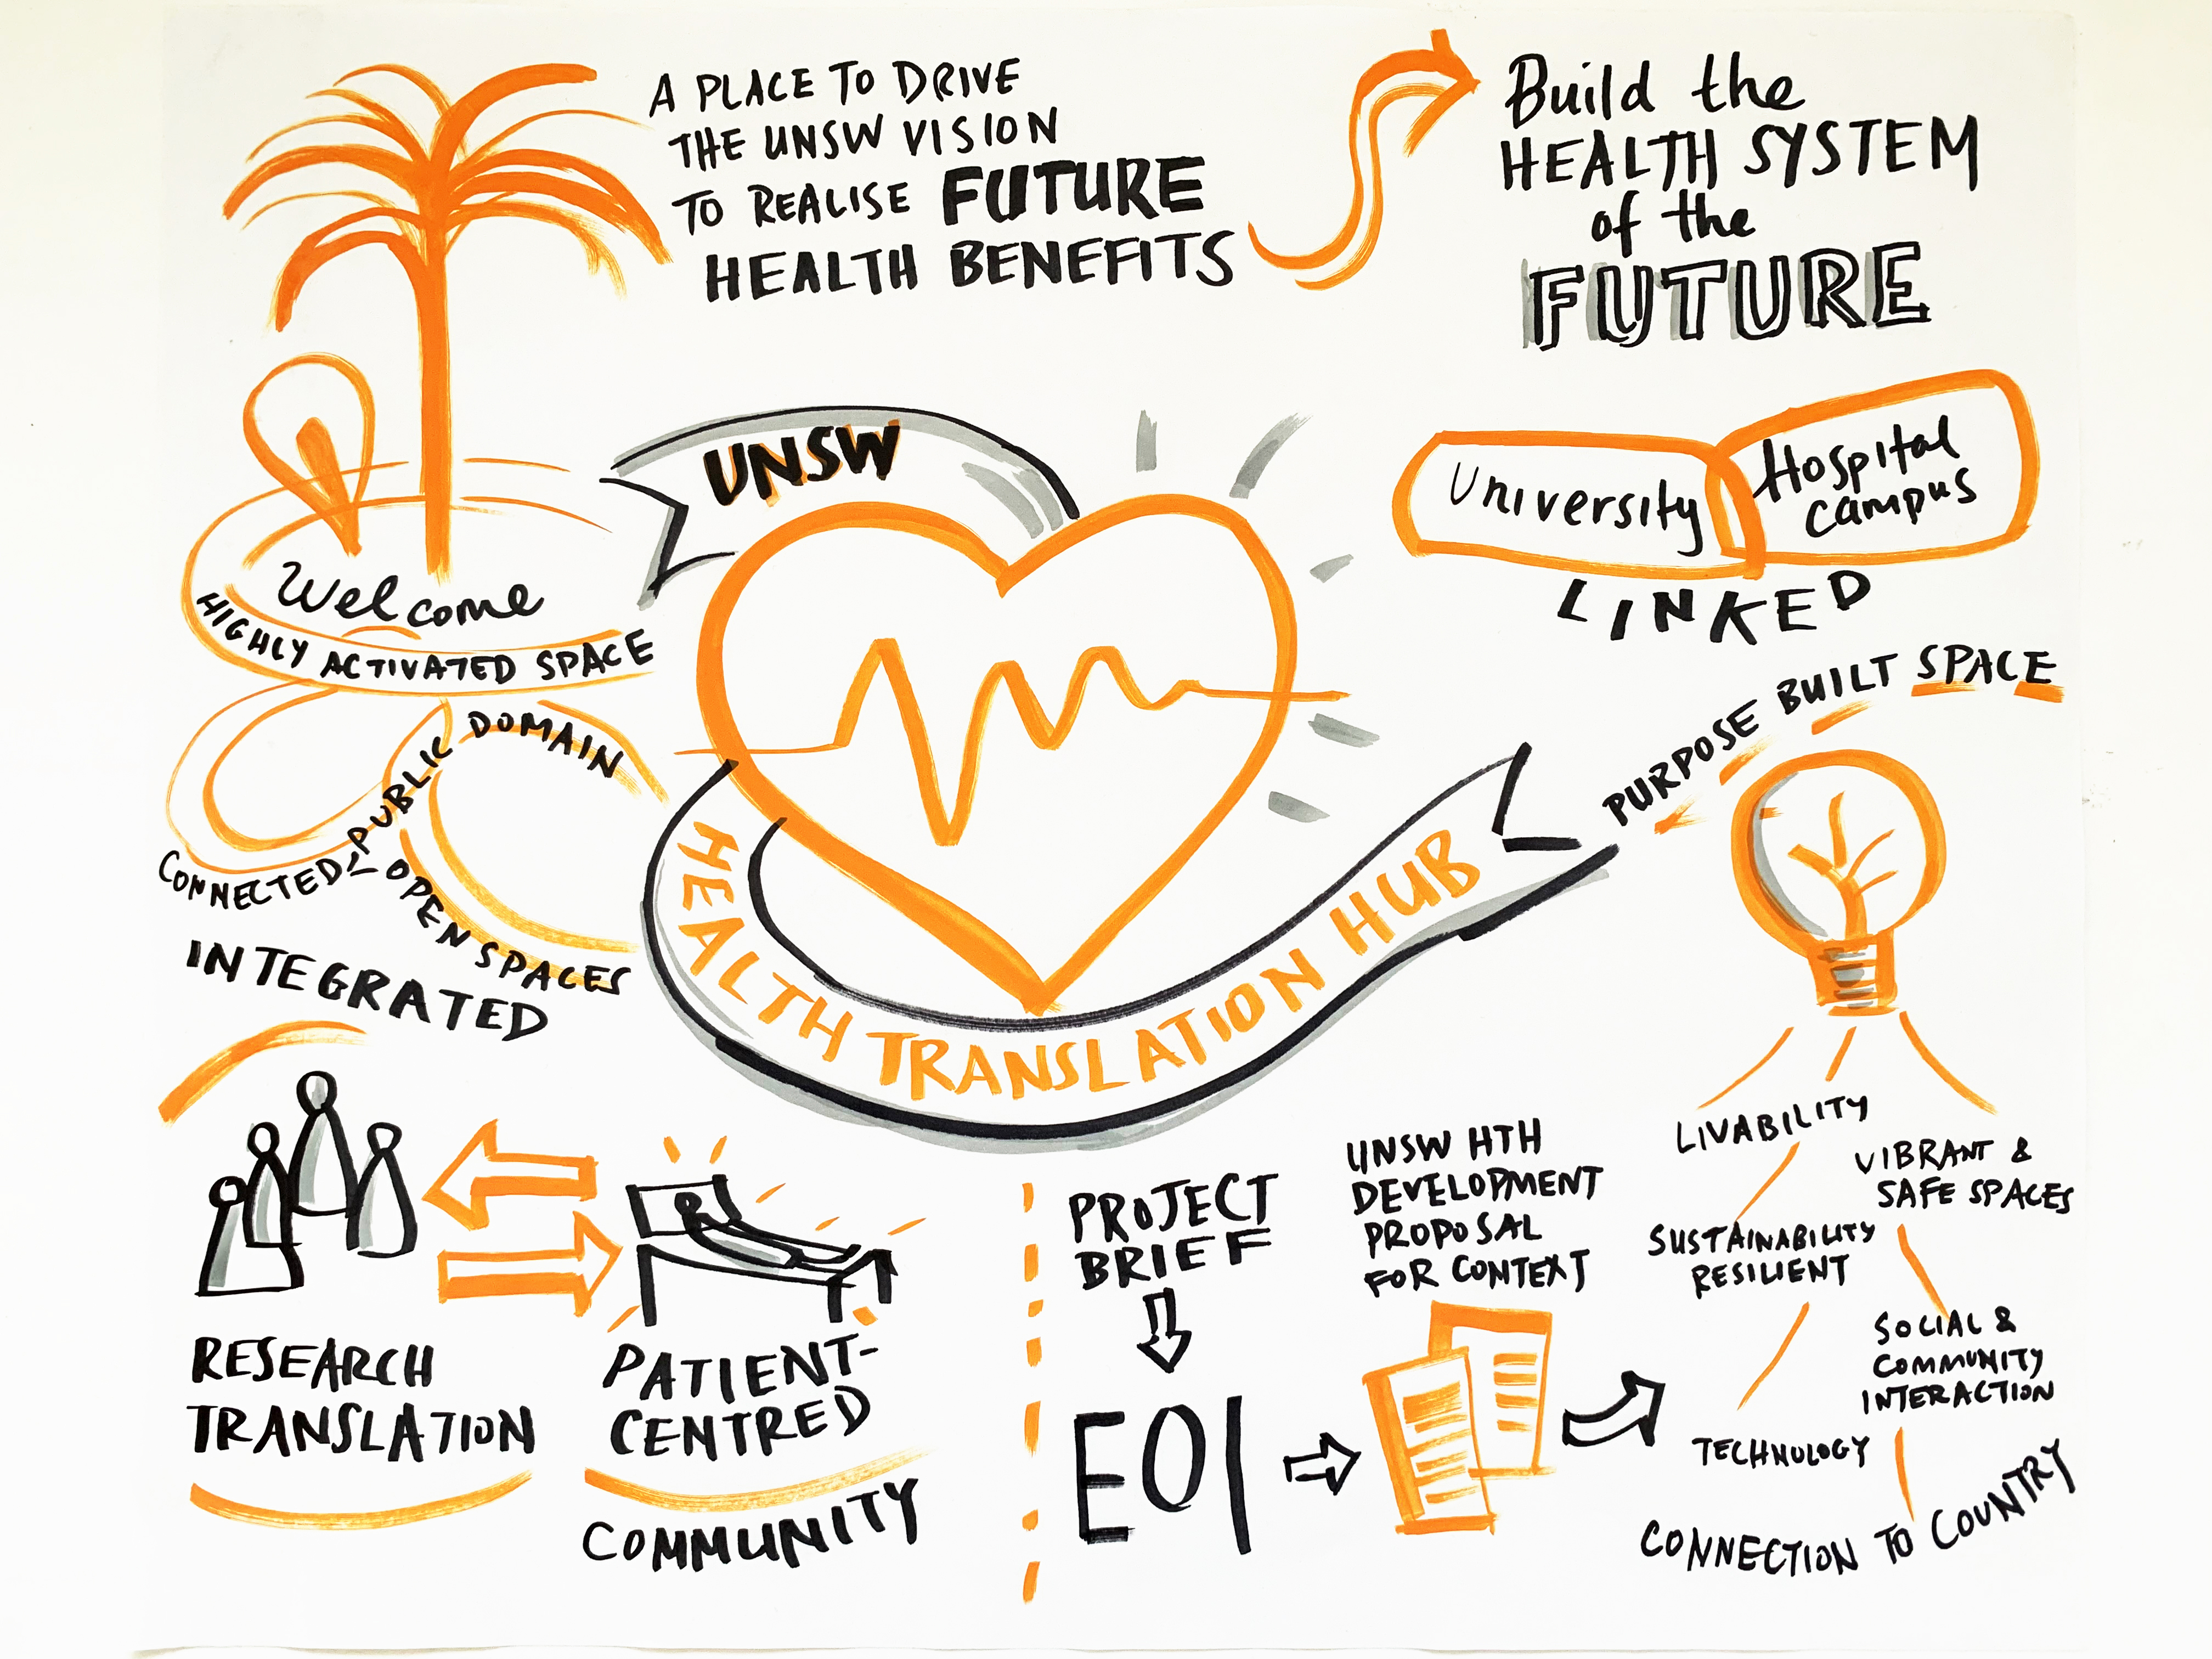 A PLACE TO DRIVE
THE UNSW VISION
TO REALISE FUTURE
HEALTH BENEFITS
Build the
HEALTH SYSTEM
of the
FUTURE
UNSW
HEALTH TRANSLATION HUB
University
Hospital
Campus
LINKED
Welcome
HIGHLY ACTIVATED SPACE
PUBLIC DOMAIN
CONNECTED
OPEN SPACES
INTEGRATED
PURPOSE BUILT SPACE
RESEARCH
TRANSLATION
PATIENT-
CENTRED
COMMUNITY
PROJECT
BRIEF
EOI
UNSW HTH
DEVELOPMENT
PROPOSAL
FOR CONTEXT
LIVABILITY
VIBRANT &
SAFE SPACES
SUSTAINABILITY
RESILIENT
SOCIAL &
COMMUNITY
INTERACTION
TECHNOLOGY
CONNECTION TO COUNTRY